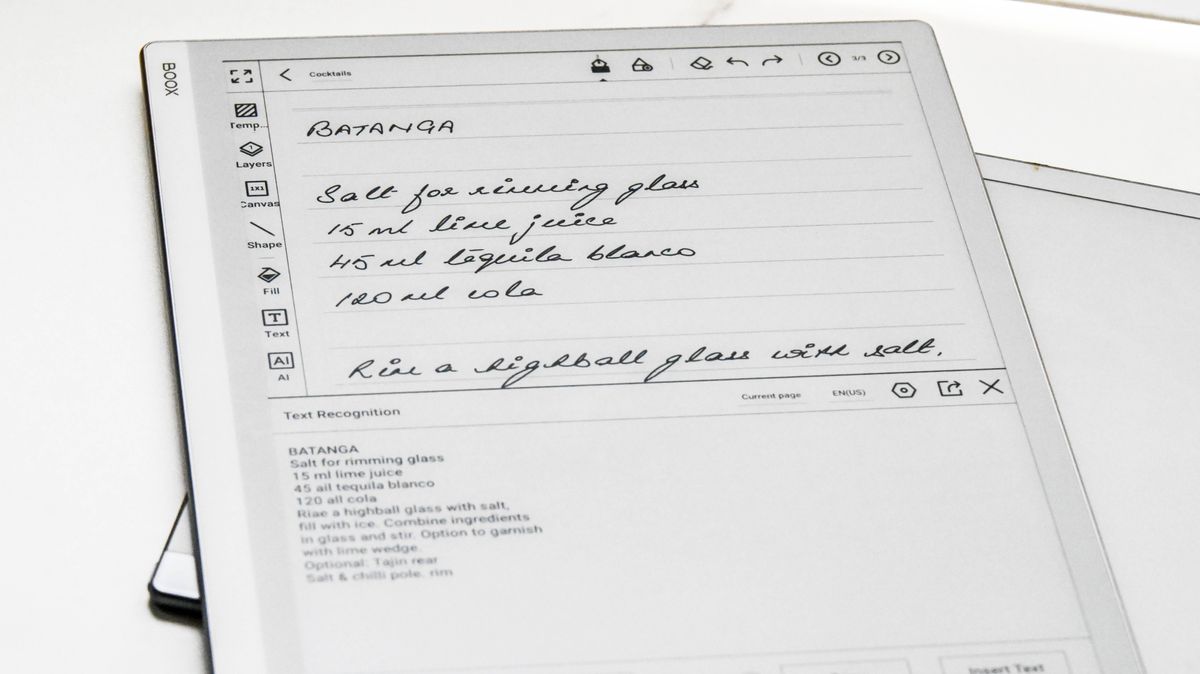 BOOX
Cocktails
3/3
Temp...
Layers
1X1
Canvas
Shape
Fill
T
Text
AI
AI
BATANGA
Salt for rimming glass
15 ml lime juice
45 ml tequila blanco
120 ml cola
Rim a highball glass with salt.
Text Recognition
Current page
EN(US)
BATANGA
Salt for rimming glass
15 ml lime juice
45 ail tequila blanco
120 all cola
Riae a highball glass with salt,
fill with ice. Combine ingredients
in glass and stir. Option to garnish
with lime wedge.
Optional: Tajin rear
Salt & chilli pole, rim
Insert Text